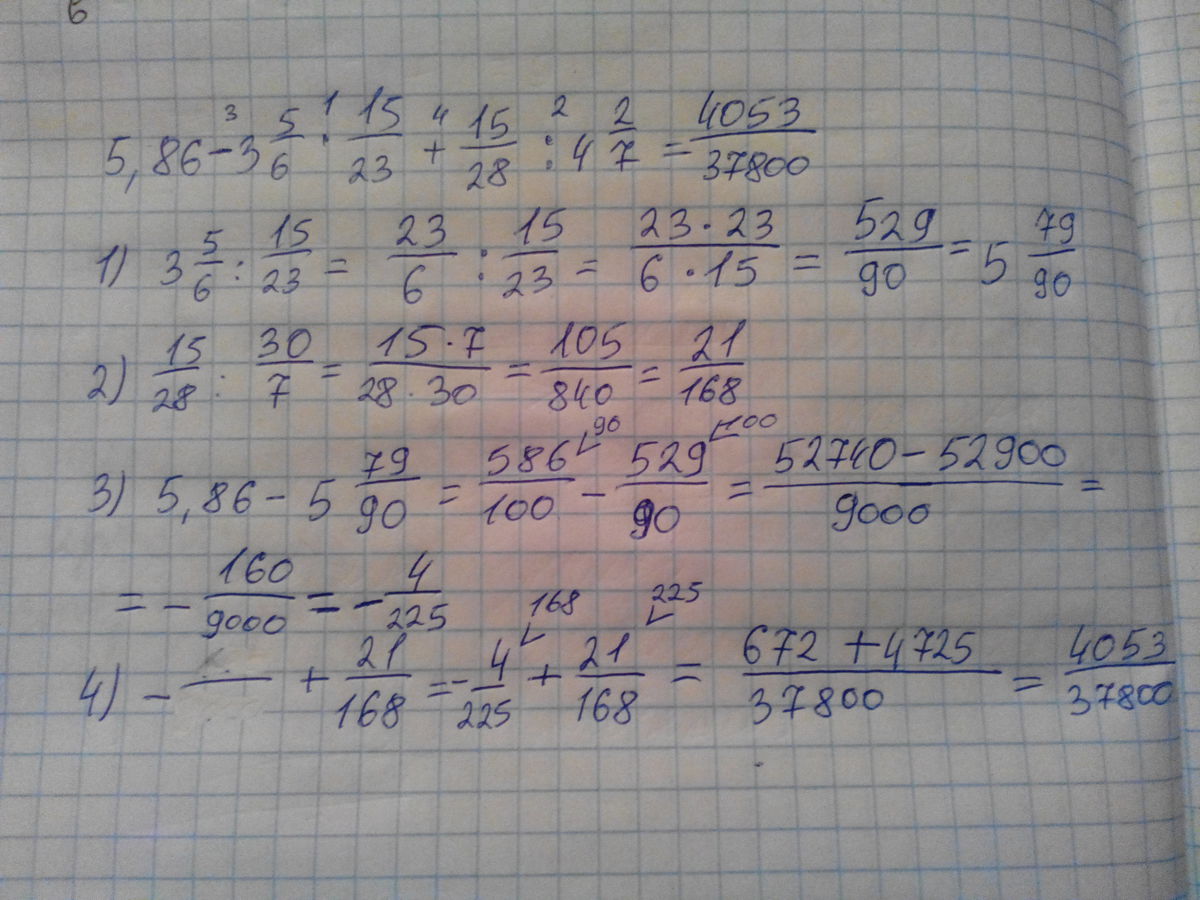 6
5,86 - 3 5/6 : 15/23 + 15/28 : 4 2/7 = 4053/37800
3 1 4 2
1) 3 5/6 : 15/23 = 23/6 : 15/23 = 23·23/6·15 = 529/90 = 5 79/90
2) 15/28 : 30/7 = 15·7/28·30 = 105/840 = 21/168
3) 5,86 - 5 79/90 = 586/100 - 529/90 = 52740 - 52900/9000 =
90 100
= - 160/9000 = - 4/225
168 225
4) - + 21/168 = - 4/225 + 21/168 = 672 + 4725/37800 = 4053/37800